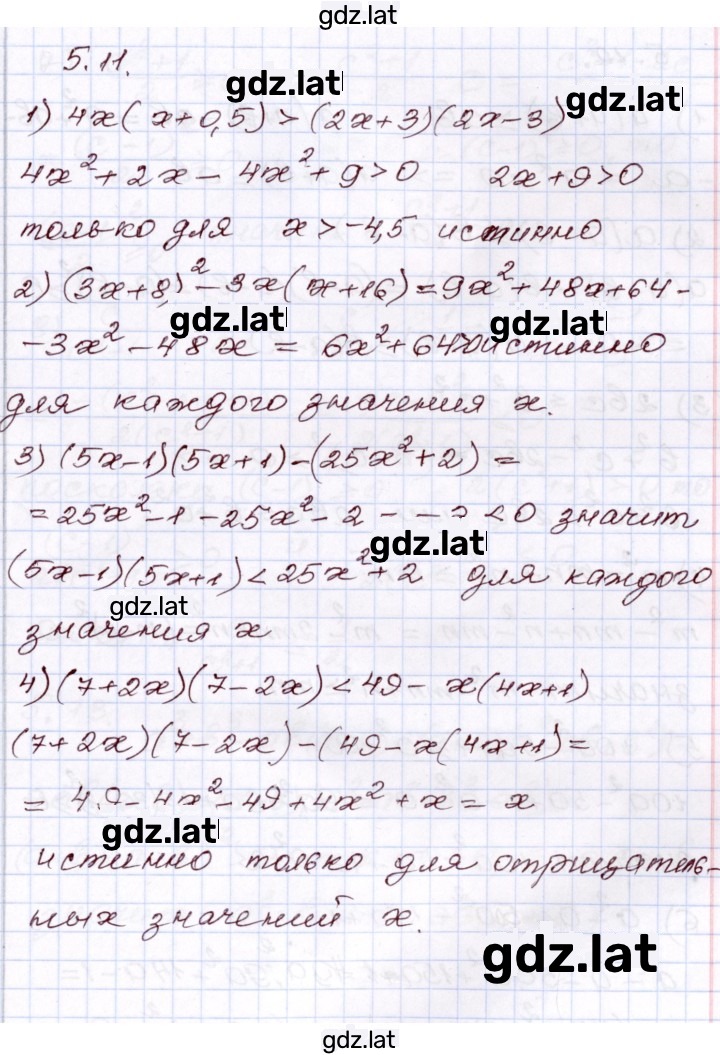 gdz.lat
5.11.
gdz.lat
gdz.lat
1) 4x(x+0,5)>(2x+3)(2x-3)
4x²+2x-4x²+9>0 2x+9>0
только для x>-4,5 истинно
2) (3x+8)²-3x(x+16)=9x²+48x+64-
gdz.lat
gdz.lat
-3x²-48x = 6x²+64>0 истинно
для каждого значения x.
3) (5x-1)(5x+1)-(25x²+2)=
=25x²-1-25x²-2 - - <0 значит
gdz.lat
(5x-1)(5x+1)<25x²+2 для каждого
gdz.lat
значения x
4) (7+2x)(7-2x)<49-x(4x+1)
(7+2x)(7-2x)-(49-x(4x+1)=
= 49-4x²-49+4x²+x=x
gdz.lat
истинно только для отрицатель-
ных значений x.
gdz.lat
gdz.lat